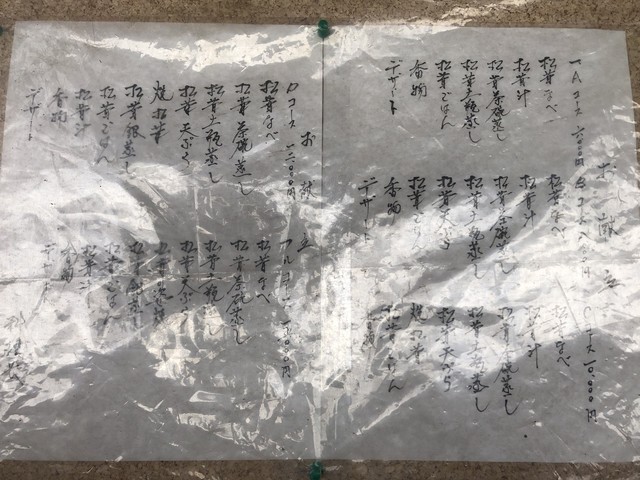 お献立
一、Aコース 六、〇〇〇円
松茸なべ
松茸汁
松茸茶碗蒸し
松茸土瓶蒸し
松茸ごはん
香物
デザート
Bコース 八、〇〇〇円
松茸なべ
松茸汁
松茸茶碗蒸し
松茸土瓶蒸し
松茸天ぷら
松茸ごはん
香物
デザート
Cコース 一〇、〇〇〇円
松茸なべ
松茸汁
松茸茶碗蒸し
松茸土瓶蒸し
松茸天ぷら
焼松茸
松茸ごはん
香物
お献立
Dコース 一二、〇〇〇円
松茸なべ
松茸茶碗蒸し
松茸土瓶蒸し
松茸天ぷら
焼松茸
松茸銀蒸し
松茸ごはん
松茸汁
香物
デザート
フルコース
松茸なべ
松茸茶碗蒸し
松茸土瓶蒸し
松茸天ぷら
松茸銀蒸し
松茸ごはん
松茸汁
香物
デザート